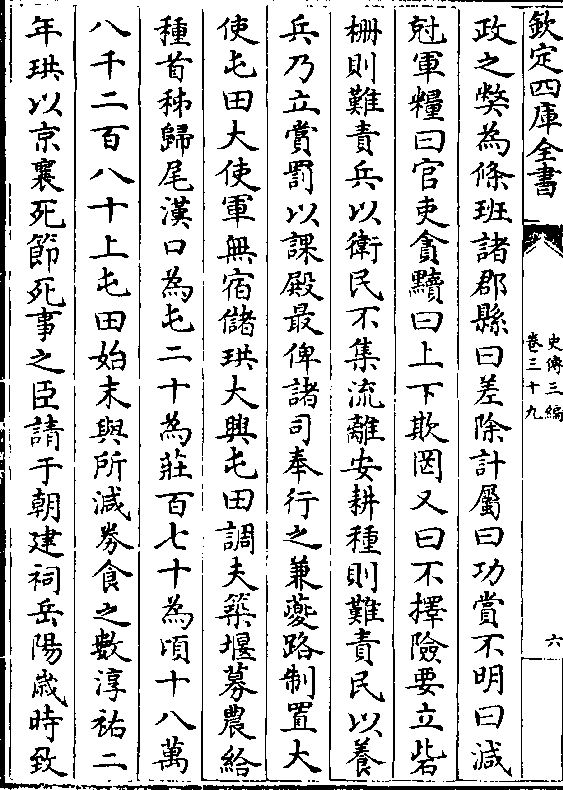 欽定四庫全書
史傳三編
卷三十九
六
政之弊為條班諸郡縣曰差除計屬曰功賞不明曰減
尅軍糧曰官吏貪黷曰上下欺罔又曰不擇險要立砦
柵則難責兵以衛民不集流離安耕種則難責民以養
兵乃立賞罰以課殿最俾諸司奉行之兼夔路制置大
使屯田大使軍無宿儲珙大興屯田調夫築堰募農給
種首秭歸尾漢口為屯二十為莊百七十為頃十八萬
八千二百八十上屯田始末與所減劵食之數淳祐二
年珙以京襄死節死事之臣請于朝建祠岳陽歲時致